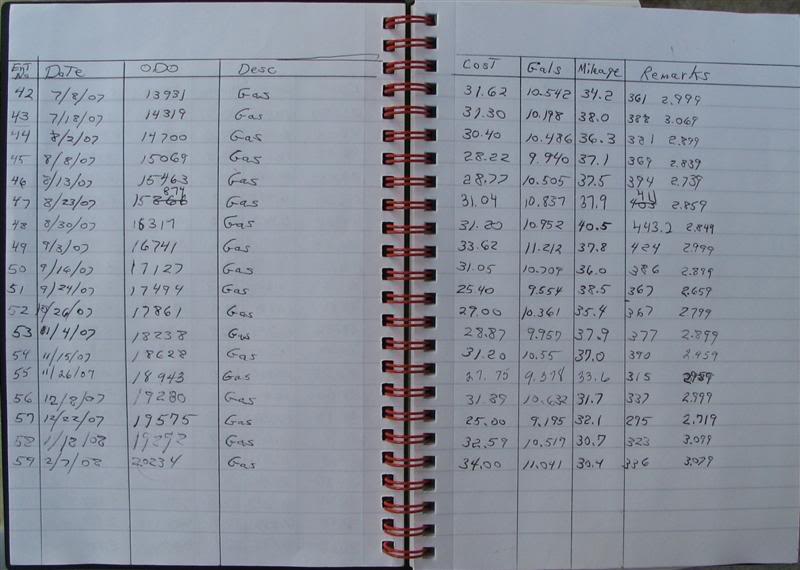 Ent No Date ODO Desc Cost Gals Mileage Remarks
42 7/8/07 13931 Gas 31.62 10.542 34.2 361 2.999
43 7/18/07 14319 Gas 31.30 10.198 38.0 388 3.069
44 8/2/07 14700 Gas 30.40 10.486 36.3 381 2.899
45 8/8/07 15069 Gas 28.22 9.940 37.1 369 2.839
46 8/13/07 15463 Gas 28.77 10.505 37.5 394 2.739
47 8/23/07 15874 Gas 31.04 10.837 37.9 411 2.859
48 8/30/07 16317 Gas 31.20 10.952 40.5 443.2 2.849
49 9/3/07 16741 Gas 33.62 11.212 37.8 424 2.999
50 9/16/07 17127 Gas 31.05 10.709 36.0 386 2.899
51 9/24/07 17494 Gas 25.40 9.554 38.5 367 2.659
52 10/26/07 17861 Gas 29.00 10.361 35.4 367 2.799
53 11/4/07 18238 Gas 28.87 9.957 37.9 377 2.899
54 11/15/07 18628 Gas 31.20 10.55 37.0 390 2.959
55 11/26/07 18943 Gas 27.75 9.378 33.6 315 2.959
56 12/8/07 19280 Gas 31.89 10.632 31.7 337 2.999
57 12/22/07 19575 Gas 25.00 9.195 32.1 295 2.719
58 1/18/08 Gas 32.59 10.517 30.7 323 3.099
59 2/7/08 20234 Gas 34.00 11.041 30.4 336 3.079